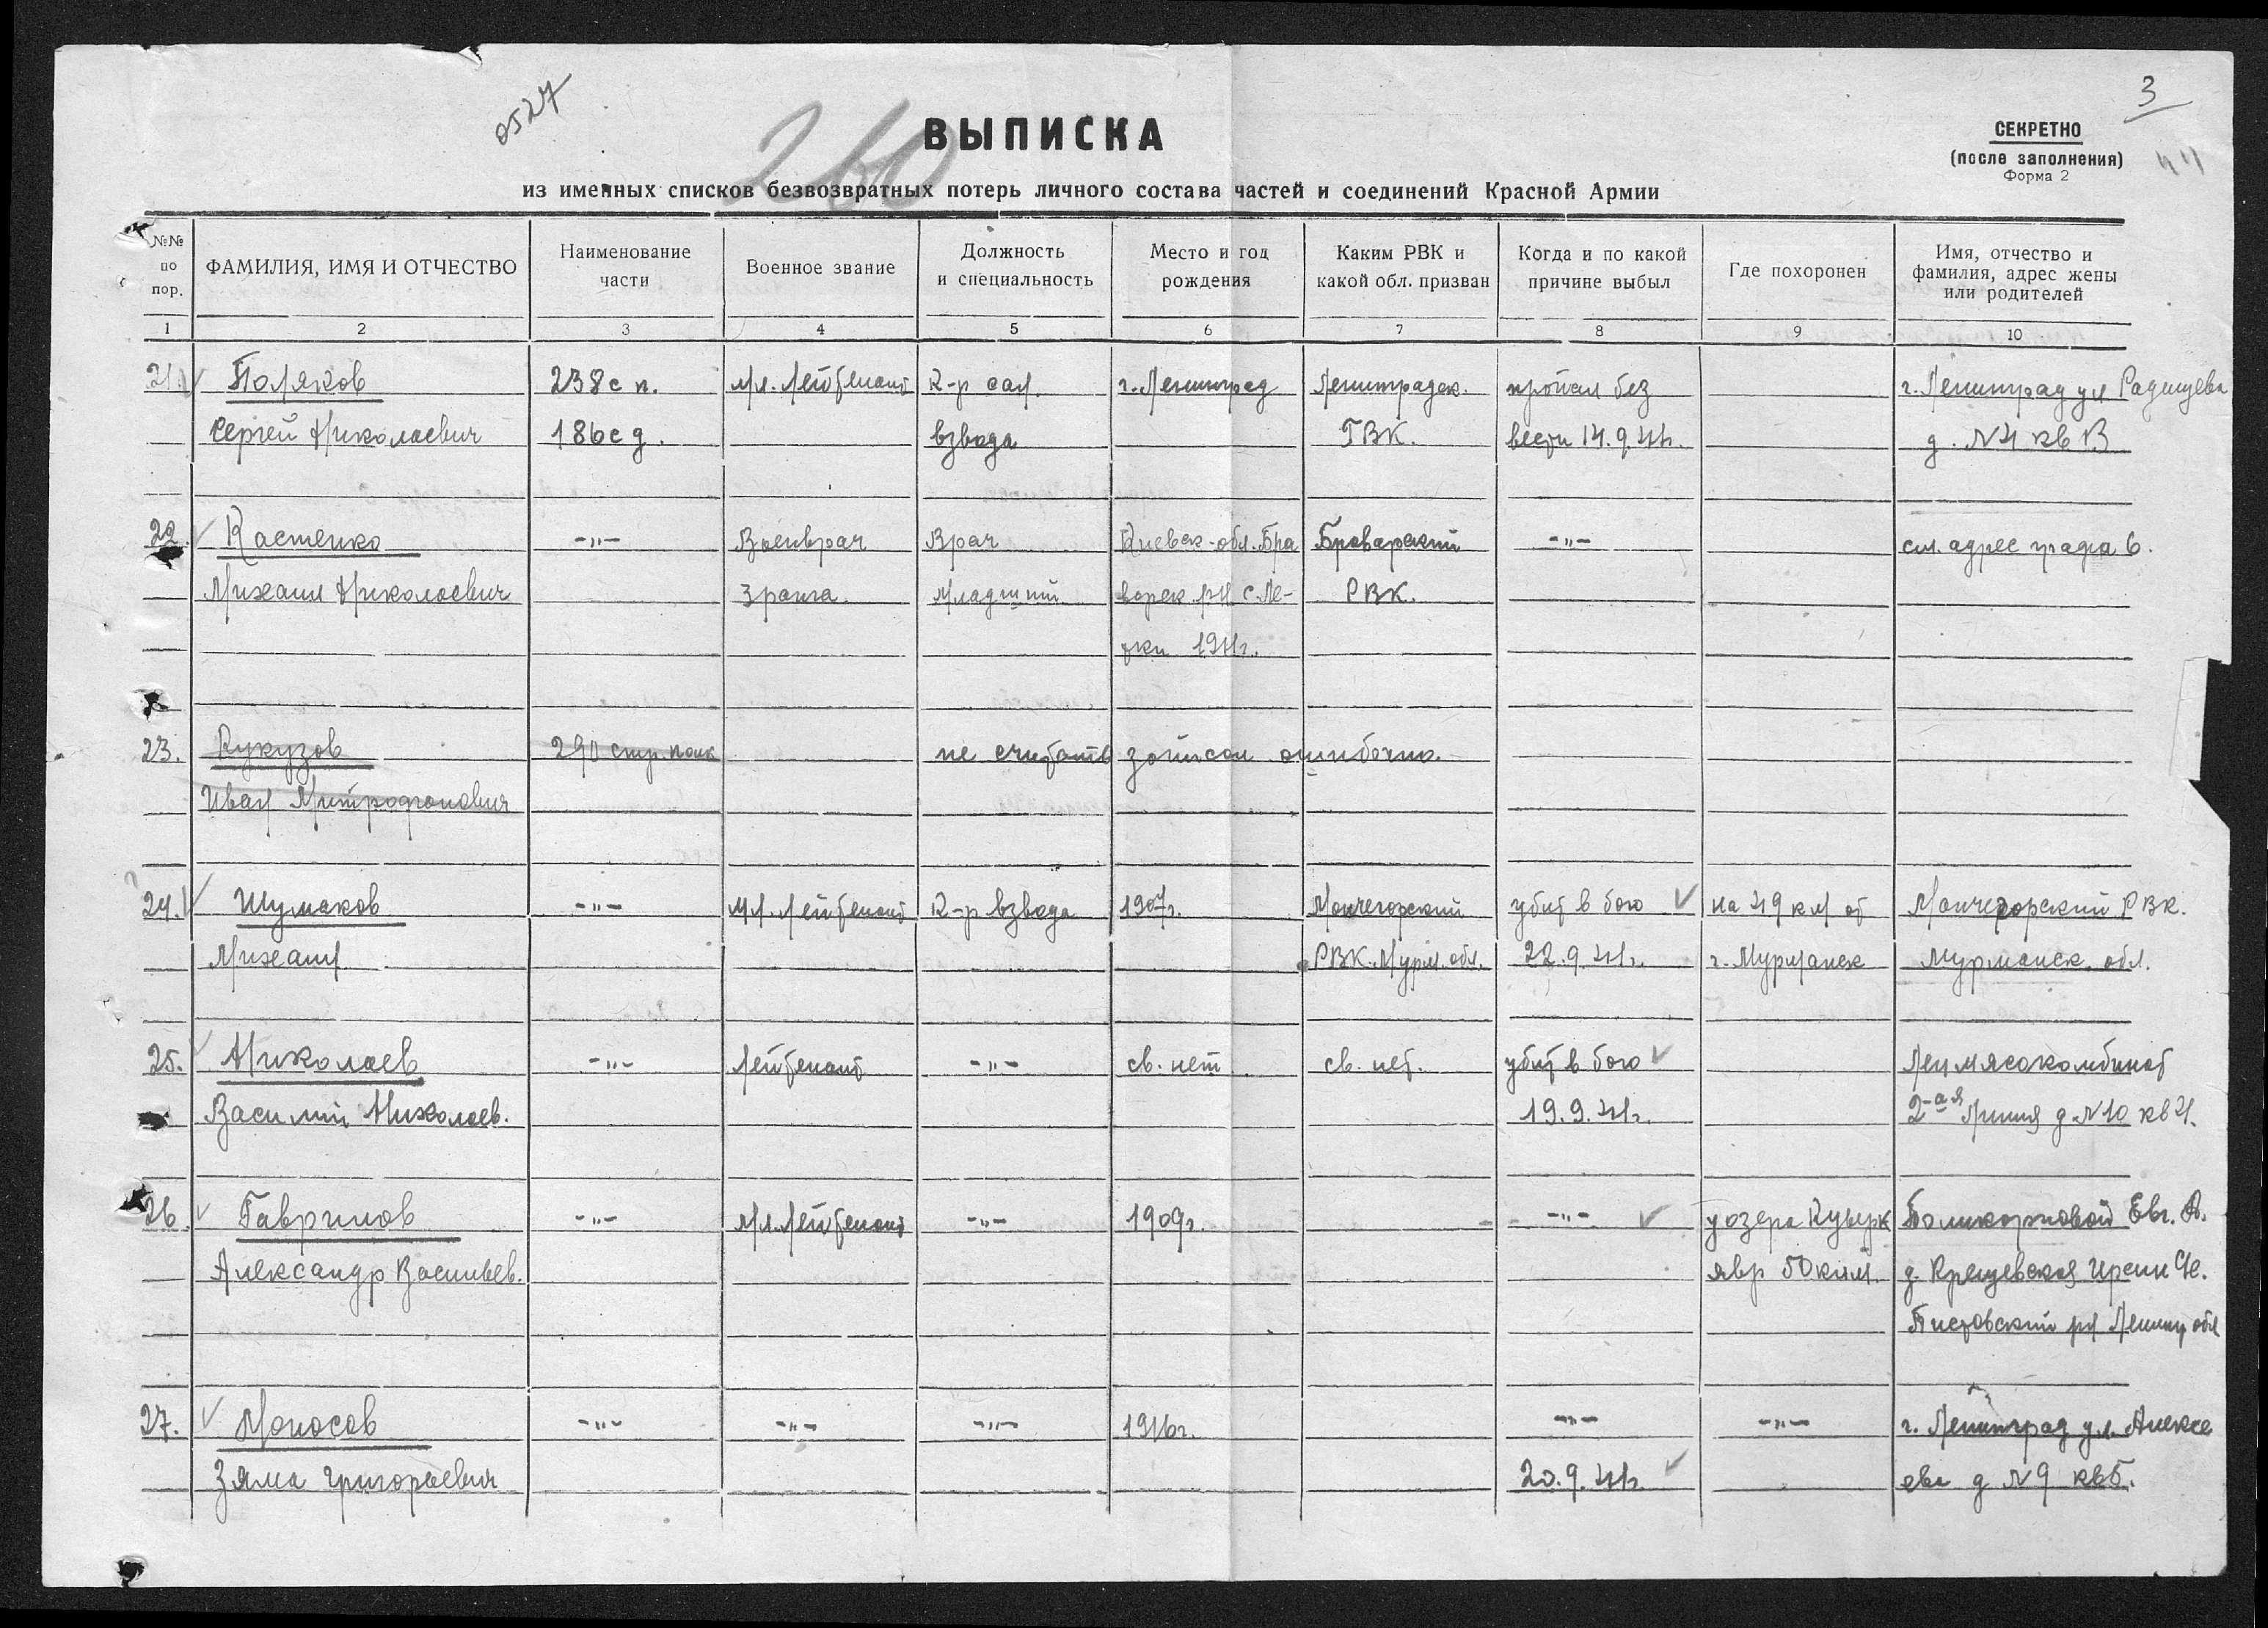 0527
3
260
ВЫПИСКА
СЕКРЕТНО
(после заполнения)
Форма 2
из именных списков безвозвратных потерь личного состава частей и соединений Красной Армии
№№ по пор. ФАМИЛИЯ, ИМЯ И ОТЧЕСТВО Наименование части Военное звание Должность и специальность Место и год рождения Каким РВК и какой обл. призван Когда и по какой причине выбыл Где похоронен Имя, отчество и фамилия, адрес жены или родителей
1 2 3 4 5 6 7 8 9 10
21. Поляков 238 с п. Мл. Лейтенант К-р сап. г. Ленинград Ленинградск. пропал без г. Ленинград ул Радищева
Сергей Николаевич 186 с д. взвода ГВК. вести 14.9.41г. д. №4 кв 13
22. Костенко -"- Военврач Врач Киевск-обл. Бра Броварский -"- см. адрес графа 6.
Михаил Николаевич 3 ранга. Младший ворск. рн с. Ле- РВК.
тки 1911г.
23. Кукузов 290 стр. полк не считать записан ошибочно.
Иван Митрофанович
24. Шумаков -"- Мл. Лейтенант К-р взвода 1907г. Мончегорский убит в бою на 49 км от Мончегорский РВК.
Михаил РВК. Мурм. обл. 22.9.41г. г. Мурманск Мурманск. обл.
25. Николаев -"- Лейтенант -"- св. нет св. нет. убит в бою Лен мясокомбинат
Василий Николаев. 19.9.41г. 2-ая Линия д №10 кв 4.
26. Гаврилов -"- Мл. Лейтенант -"- 1909г. - -"- у озера Куырк Поликарповой Евг. А.
Александр Васильев. явр 50 клм. д. Крещевская
Пестовский рн Ленинг обл
27. Моносов -"- -"- -"- 1916г. -"- -"- г. Ленинград ул. Алексе
Зяма Григорьевич 20.9.41г. ева д №9 кв 5.